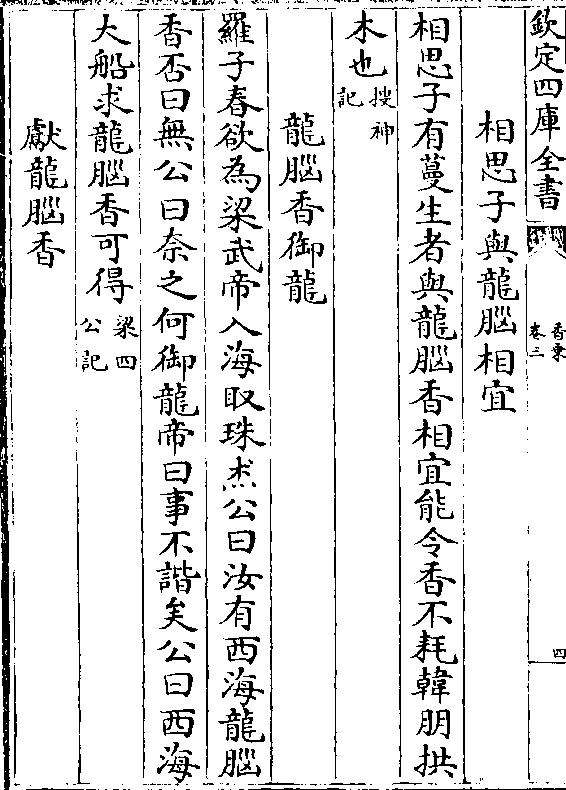 欽定四庫全書
香乗
卷三
四
相思子與龍腦相宜
相思子有蔓生者與龍腦香相宜能令香不耗韓朋拱
木也搜神
記
龍腦香御龍
羅子春欲為梁武帝入海取珠杰公曰汝有西海龍腦
香否曰無公曰奈之何御龍帝曰事不諧矣公曰西海
大船求龍腦香可得梁四
公記
獻龍腦香